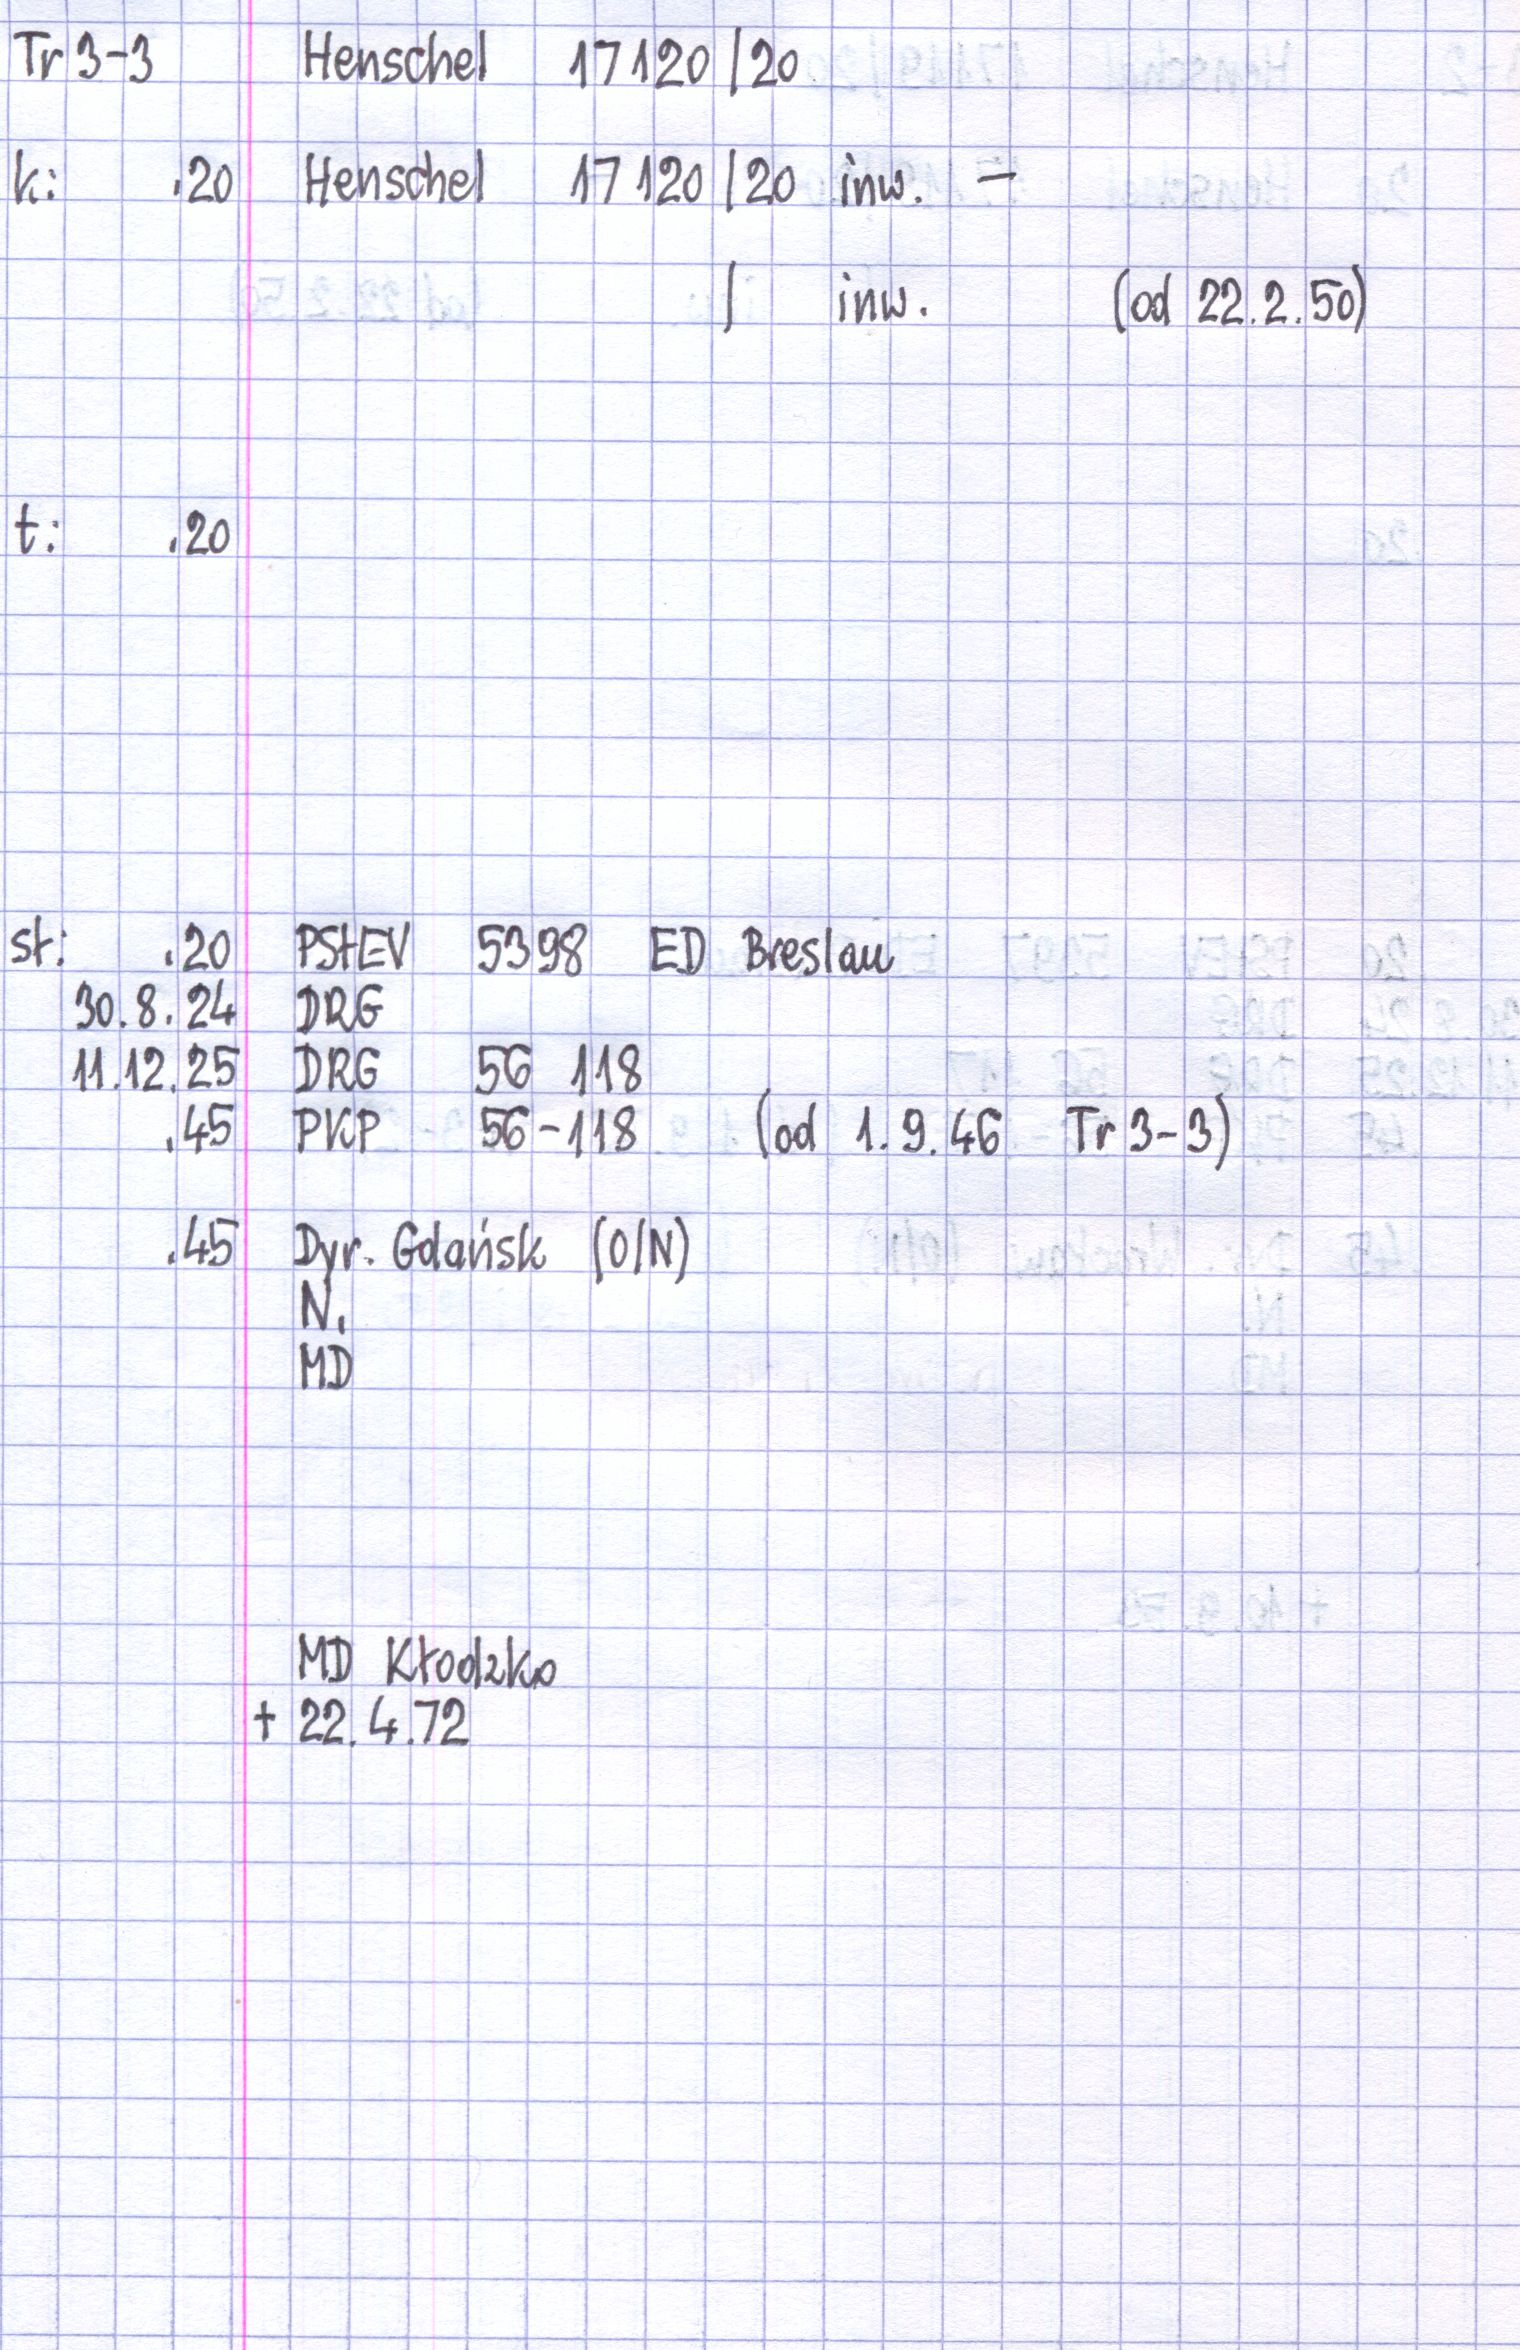 Tr 3-3 Henschel 17120/20
k: .20 Henschel 17120/20 inw. –
/ inw. (od 22.2.50)
t: .20
st: .20 PStEV 5398 ED Breslau
30.8.24 DRG
11.12.25 DRG 56 118
.45 PKP 56-118 (od 1.9.46 Tr 3-3)
.45 Dyr. Gdańsk (O/N)
N.
MD
MD Kłodzko
+ 22.4.72